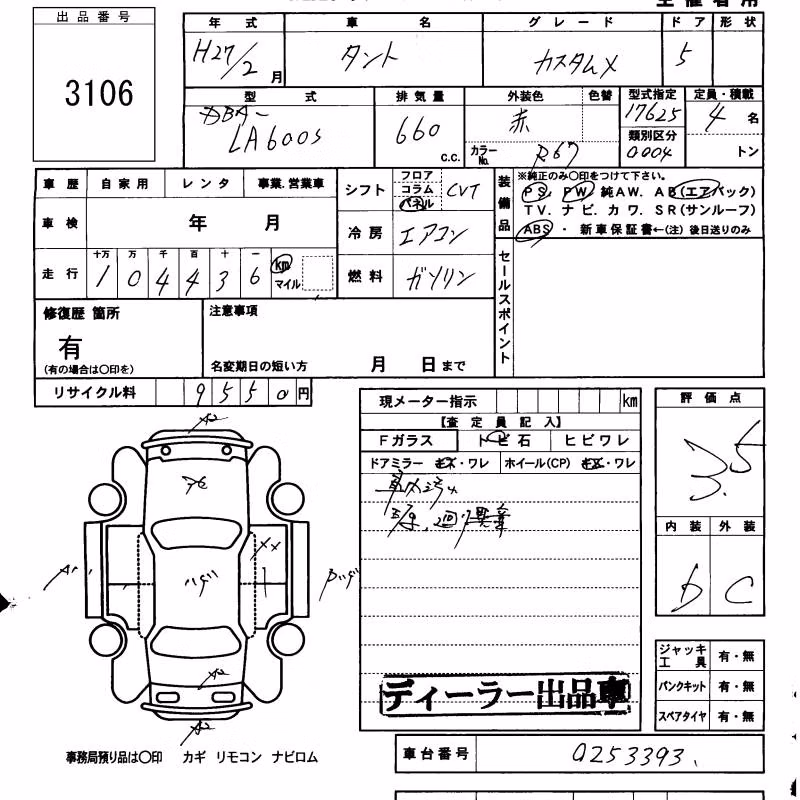 出品番号
3106
年式 車名 グレード ドア 形状
H27/2月 タント カスタムX 5
型式 排気量 外装色 色替 型式指定 定員・積載
DBA-
LA600S 660 c.c. 赤 17625 4名
カラーNo. R67 類別区分 0004 トン
車歴 自家用 レンタ 事業.営業車
車検 年 月
走行 十万 万 千 百 十 一
104436 km マイル
シフト フロア コラム パネル CVT
冷房 エアコン
燃料 ガソリン
装備品 ※純正のみ〇印をつけて下さい。
PS. PW. 純AW. AB(エアバック)
TV. ナビ. カワ. SR(サンルーフ)
ABS ・ 新車保証書←(注) 後日送りのみ
セールスポイント
修復歴 箇所
有
(有の場合は〇印を)
注意事項
名変期日の短い方 月 日まで
リサイクル料 9550円
現メーター指示 km
【査定員記入】
Fガラス トビ石 ヒビワレ
ドアミラー キズ・ワレ ホイール(CP) キズ・ワレ
評価点
3.5
内装 外装
D C
A2
XX
A2
A2
ディーラー出品車
ジャッキ工具 有・無
パンクキット 有・無
スペアタイヤ 有・無
事務局預り品は〇印 カギ リモコン ナビロム
車台番号 0253393